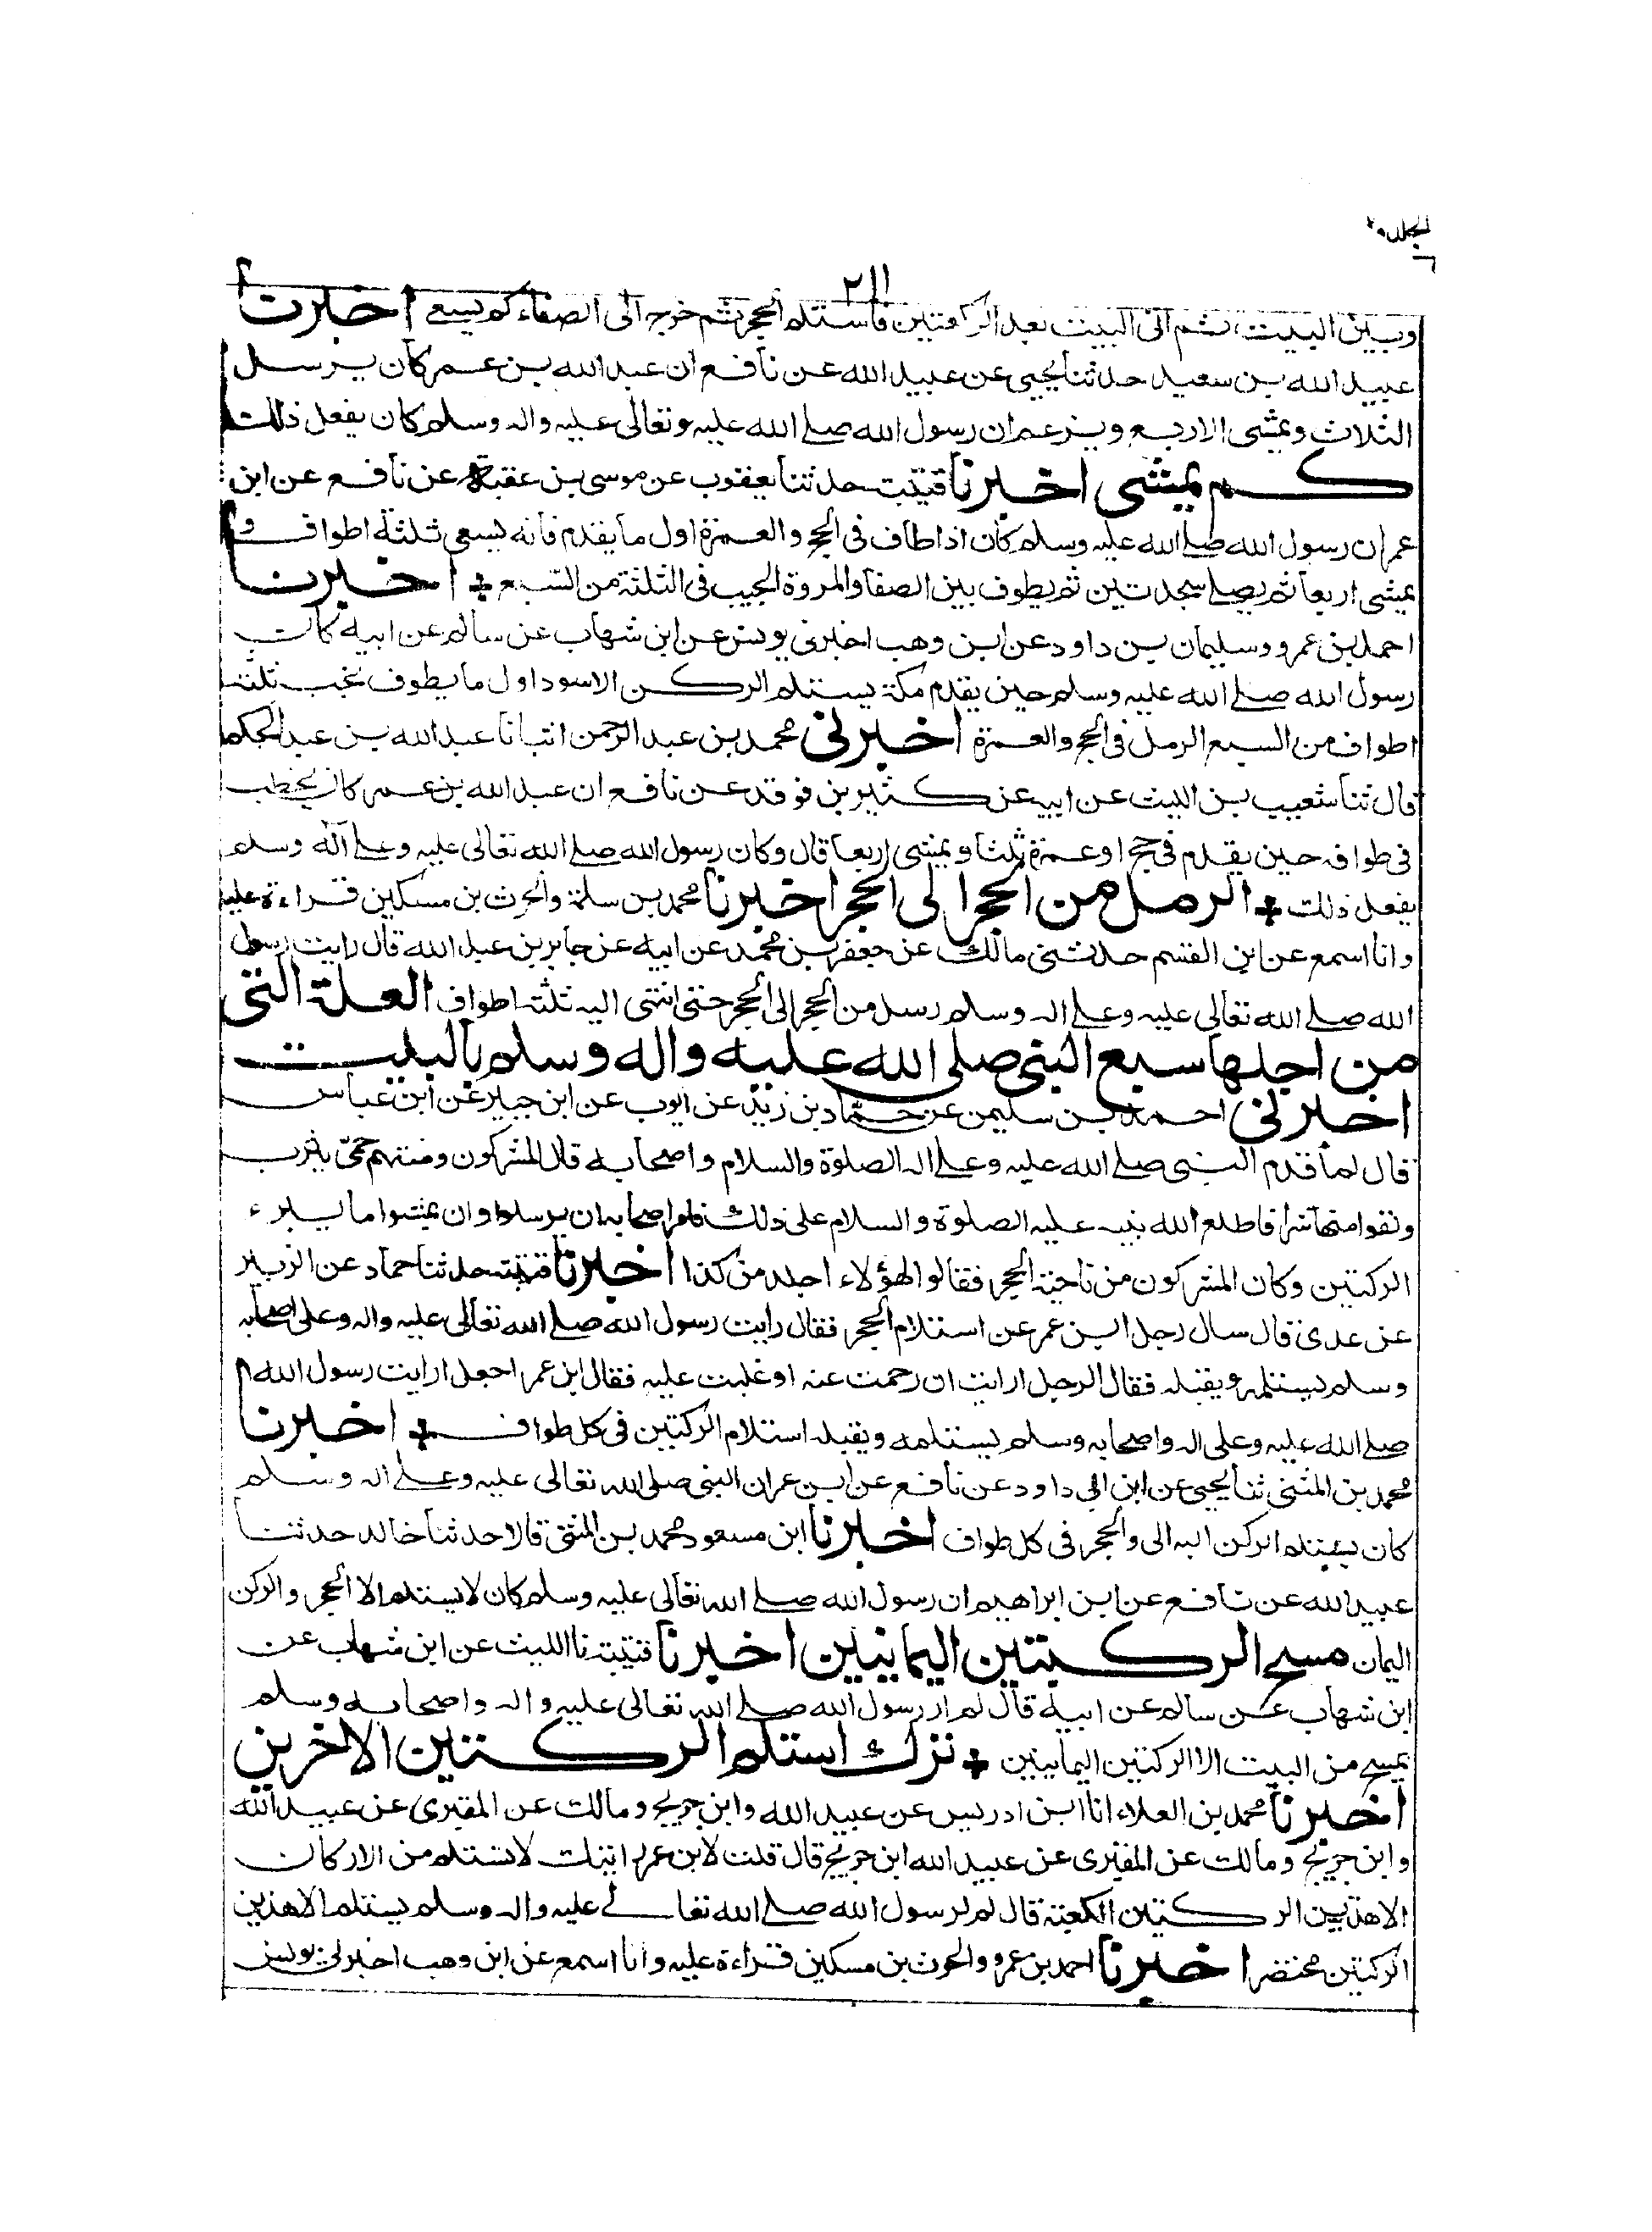 الجلد ٢
٢١١
وبين البيت ثم اتى البيت بعد الركعتين فاستلم الحجر ثم خرج الى الصفا كم يسعى اخبرنا
عبيد الله بن سعيد حدثنا يحيى عن عبيد الله عن نافع ان عبد الله بن عمر كان يرسل
الثلاث ويمشى الاربع ويزعم ان رسول الله صلے الله عليه وتعالى عليه واله وسلم كان يفعل ذلك
كم يمشى اخبرنا قتيبة حدثنا يعقوب عن موسى بن عقبة عن نافع عن ابن
عمر ان رسول الله صلے الله عليه وسلم كان اذا طاف فى الحج والعمرة اول ما يقدم فانه يسعى ثلثة اطواف و
يمشى اربعا ثم يصلے سجدتين ثم يطوف بين الصفا والمروة الجيب فى الثلثة من السبع + اخبرنا
احمد بن عمرو وسليمان بن داود عن ابن وهب اخبرنى يونس عن ابن شهاب عن سالم عن ابيه كان
رسول الله صلے الله عليه وسلم حين يقدم مكة يستلم الركن الاسود اول ما يطوف يخب ثلثة
اطواف من السبع الرمل فى الحج والعمرة اخبرنى محمد بن عبد الرحمن انبانا عبد الله بن عبد الحكم
قال ثنا شعيب بن الليث عن ابيه عن كثير بن فرقد عن نافع ان عبد الله بن عمر كان يخطب
فى طوافه حين يقدم فى حج او عمرة ثلثا ويمشى اربعا قال وكان رسول الله صلے الله تعالى عليه وعلے آله وسلم
يفعل ذلك + الرمل من الحجر الى الحجر اخبرنا محمد بن سلمة والحرث بن مسكين قراءة عليه
وانا اسمع عن ابن القسم حدثنى مالك عن جعفر بن محمد عن ابيه عن جابر بن عبد الله قال رايت رسول
الله صلے الله تعالى عليه وعلے اله وسلم رسل من الحجر الى الحجر حتى انتهى اليه ثلثة اطواف العلة التى
من اجلها سبع النبى صلى الله عليه واله وسلم بالبيت
اخبرنى احمد بن سليمن عن حماد بن زيد عن ايوب عن ابن جبير عن ابن عباس
قال لما قدم النبى صلے الله عليه وعلے اله الصلوة والسلام واصحابه قال المشركون وهنتهم حمى يثرب
ولقوا منها شرا فاطلع الله نبيه عليه الصلوة والسلام على ذلك فامر اصحابه ان يرسلوا وان يمشوا ما بين
الركنين وكان المشركون من ناحية الحجر فقالوا لهؤلاء اجلد من كذا اخبرنا قتيبة حدثنا حماد عن الزبير
عن عدى قال سال رجل ابن عمر عن استلام الحجر فقال رايت رسول الله صلے الله تعالى عليه واله وعلى اصحابه
وسلم يستلمه ويقبله فقال الرجل ارايت ان زحمت عنه او غلبت عليه فقال ابن عمر اجعل ارايت رسول الله
صلے الله عليه وعلى اله واصحابه وسلم يستلمه ويقبله استلام الركنين فى كل طواف + اخبرنا
محمد بن المثنى ثنا يحيى عن ابن ابى داود عن نافع عن ابن عمر ان النبى صلى الله تعالى عليه وعلے اله وسلم
كان يستلم الركن اليمانى والحجر فى كل طواف اخبرنا ابن مسعود محمد بن المثنى قالا حدثنا خالد حدثنا
عبيد الله عن نافع عن ابن ابراهيم ان رسول الله صلے الله تعالى عليه وسلم كان لا يستلم الا الحجر والركن
اليمان مسح الركنين اليمانيين اخبرنا قتيبة نا الليث عن ابن شهاب عن
ابن شهاب عن سالم عن ابيه قال لم ار رسول الله صلے الله تعالى عليه واله واصحابه وسلم
يمسح من البيت الا الركنين اليمانيين + ترك استلم الركنين الاخرين
اخبرنا محمد بن العلاء انا ابن ادريس عن عبيد الله وابن جريج ومالك عن المقبرى عن عبيد الله
وابن جريج ومالك عن المقبرى عن عبيد الله ابن جريج قال قلت لابن عمر رايتك لا تستلم من الاركان
الا هذين الركنين الكعبة قال لم ار رسول الله صلے الله تعالے عليه واله وسلم يستلم الا هذين
الركنين مختصر اخبرنا احمد بن عمرو والحرث بن مسكين قراءة عليه وانا اسمع عن ابن وهب اخبرنى يونس